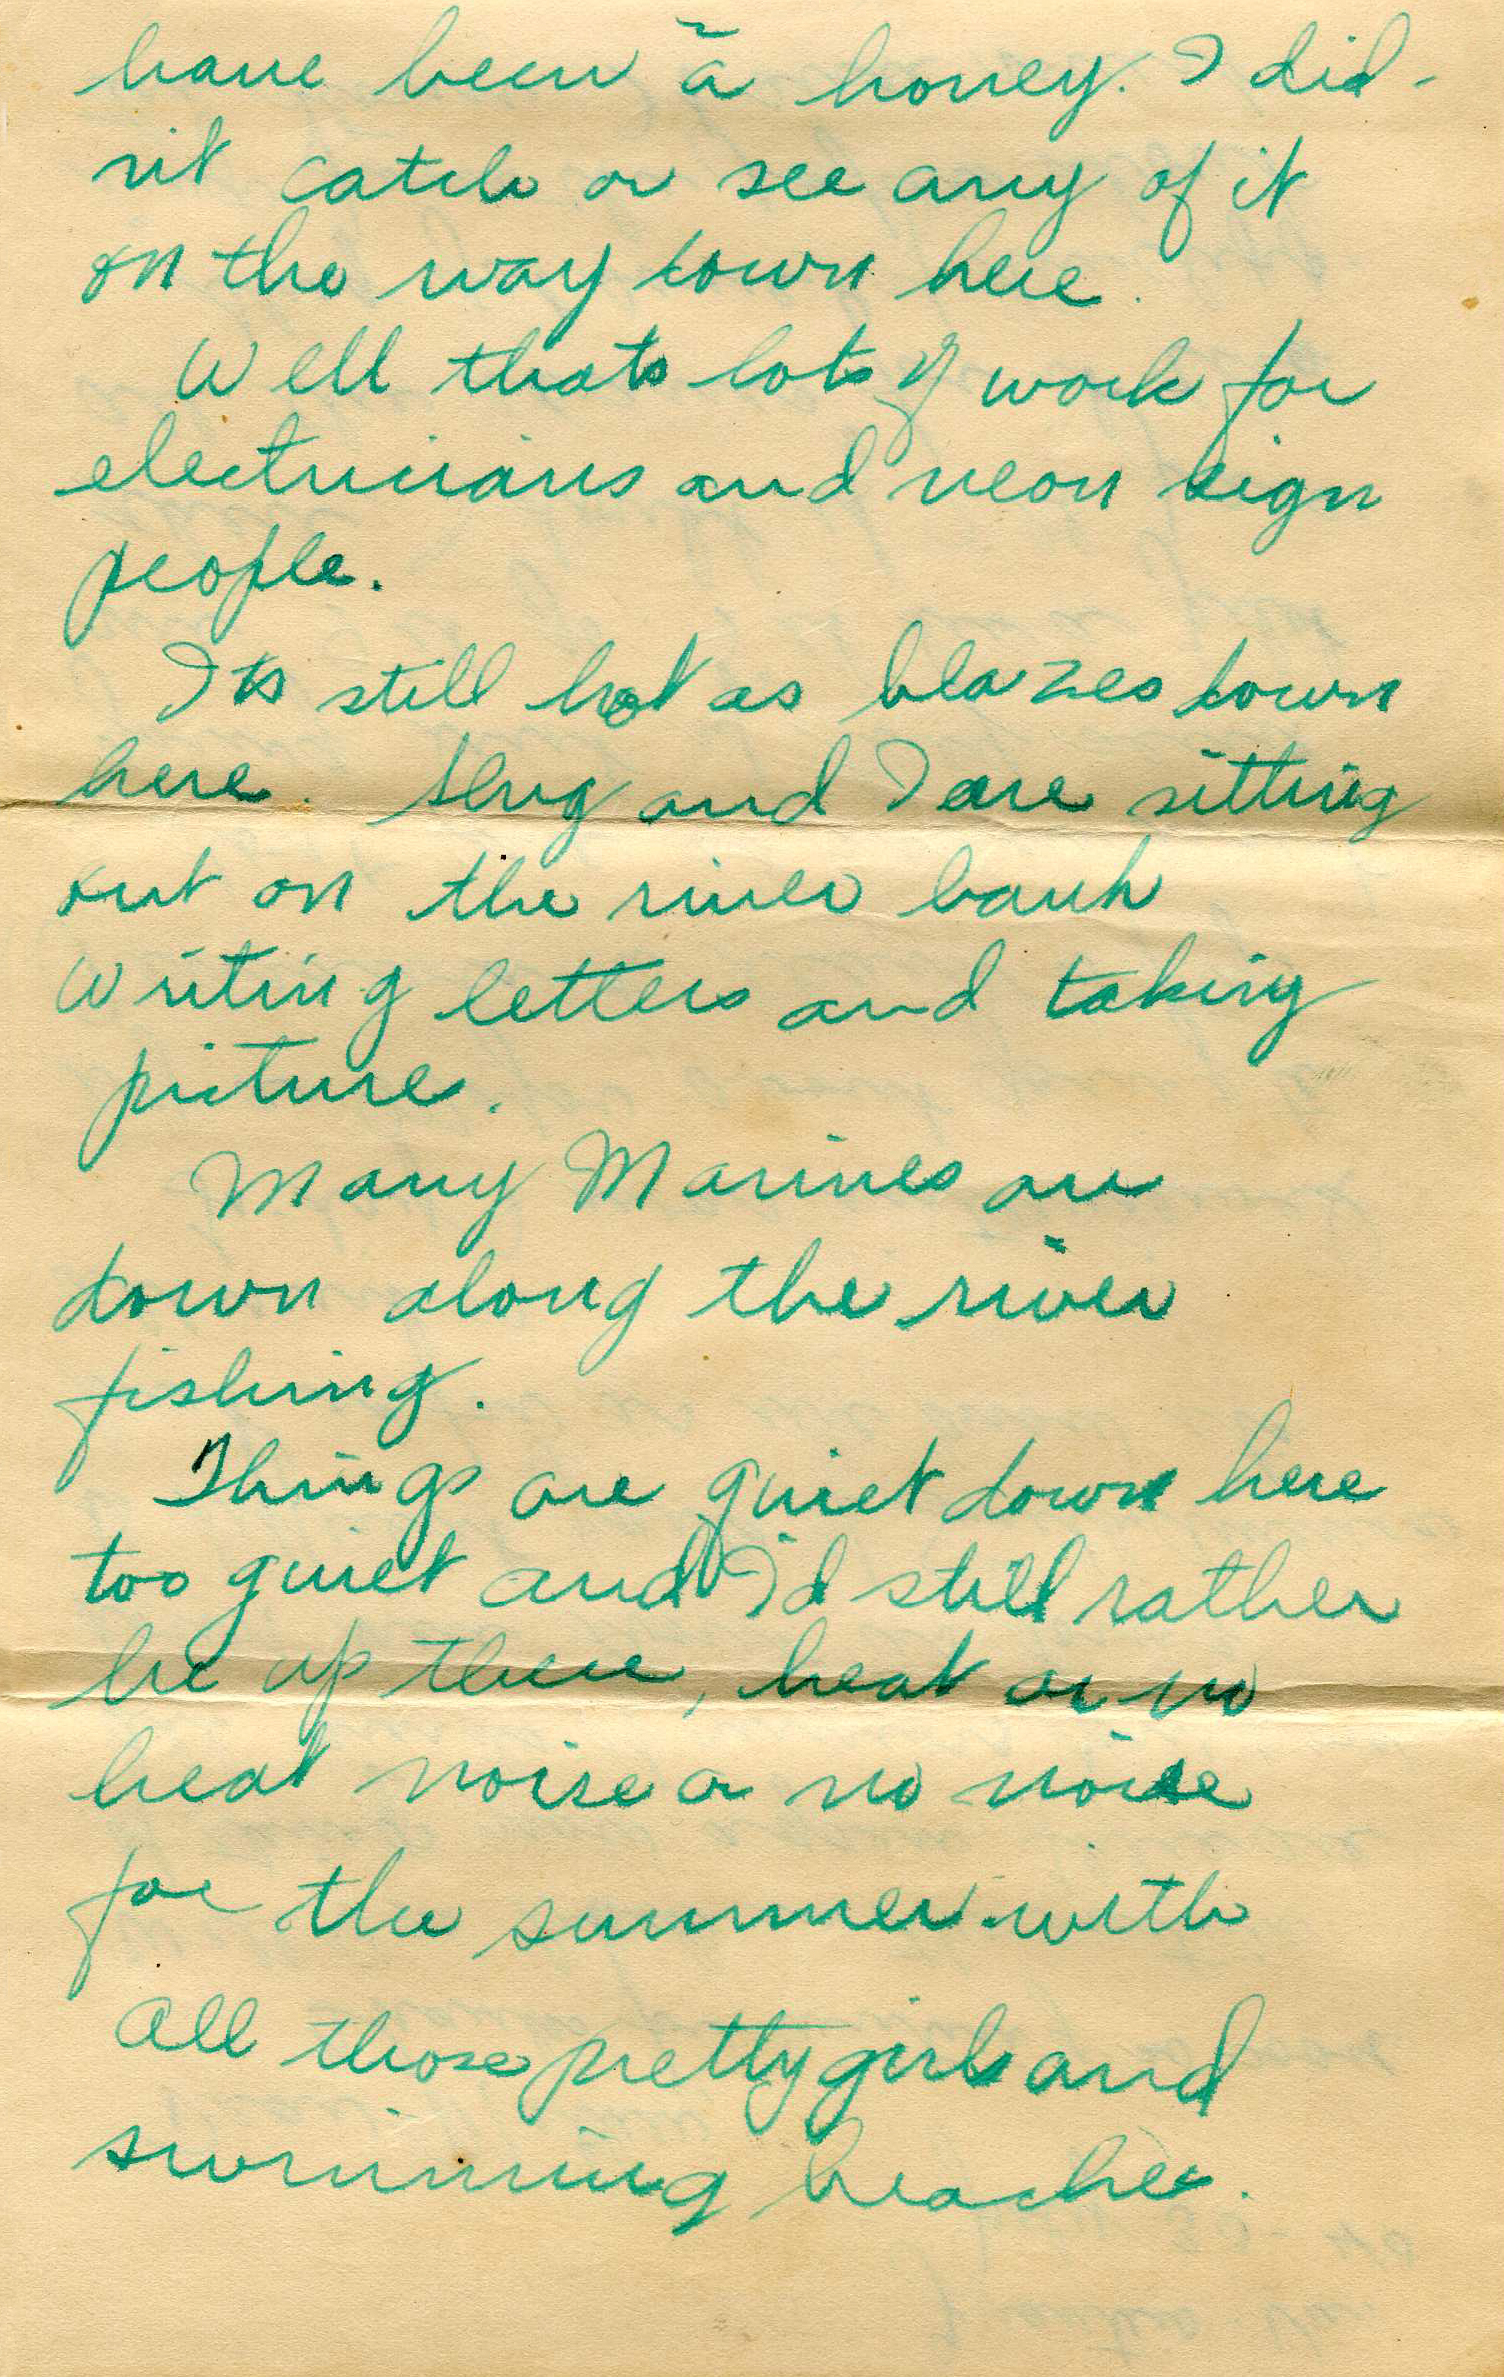 have been a honey. I did-
nt catch or see any of it
on the way down here.
Well thats lots of work for
electricians and neon sign
people.
Its still hot as blazes down
here. Slug and I are sitting
out on the river bank
writing letters and taking
picture.
Many Marines are
down along the river
fishing.
Things are quiet down here
too quiet and I'd still rather
be up there, heat or no
heat noise or no noise
for the summer with
all those pretty girls and
swimming beaches.